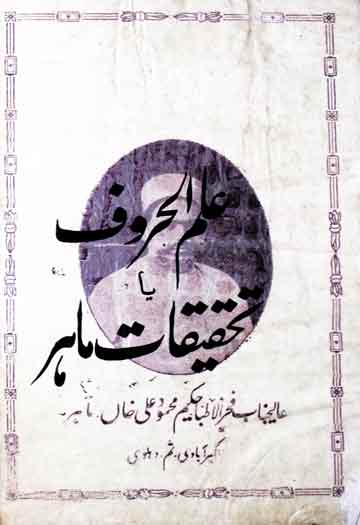 علم الحروف
یا
تحقیقات ماہر
عالیجناب فخر الاطبا حکیم محمود علی خاں۔ ماہر۔
اکبر آبادی۔ ثم۔ دہلوی